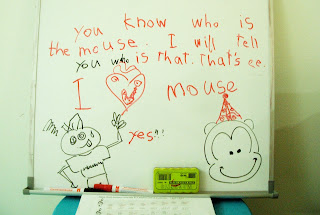 you know who is
the mouse. I will tell
you who is that. That's ee.
I mouse
yes!!